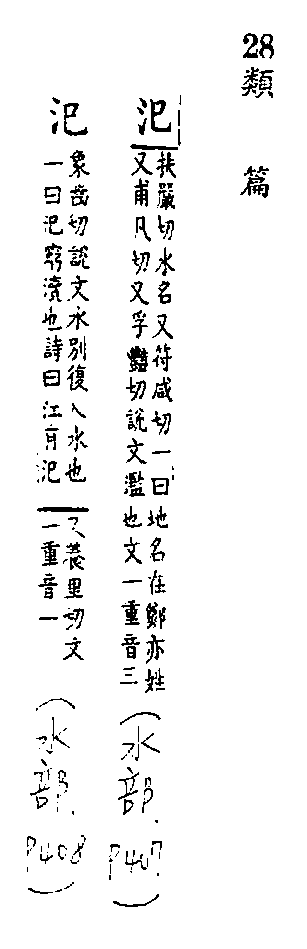 28類 篇
氾
扶嚴切水名又符咸切一曰地名在鄭亦姓
又甫凡切又孚豔切說文濫也文一重音三
(水部. P407)
汜
象齒切說文水別復入水也
一曰汜窮瀆也詩曰江有汜
又養里切文
一重音一
(水部. P408)